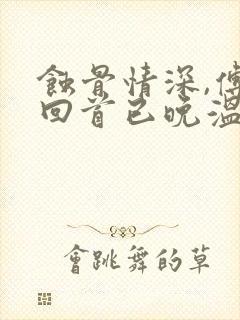 蝕骨情深,傅
回首已晚溫
會跳舞的草